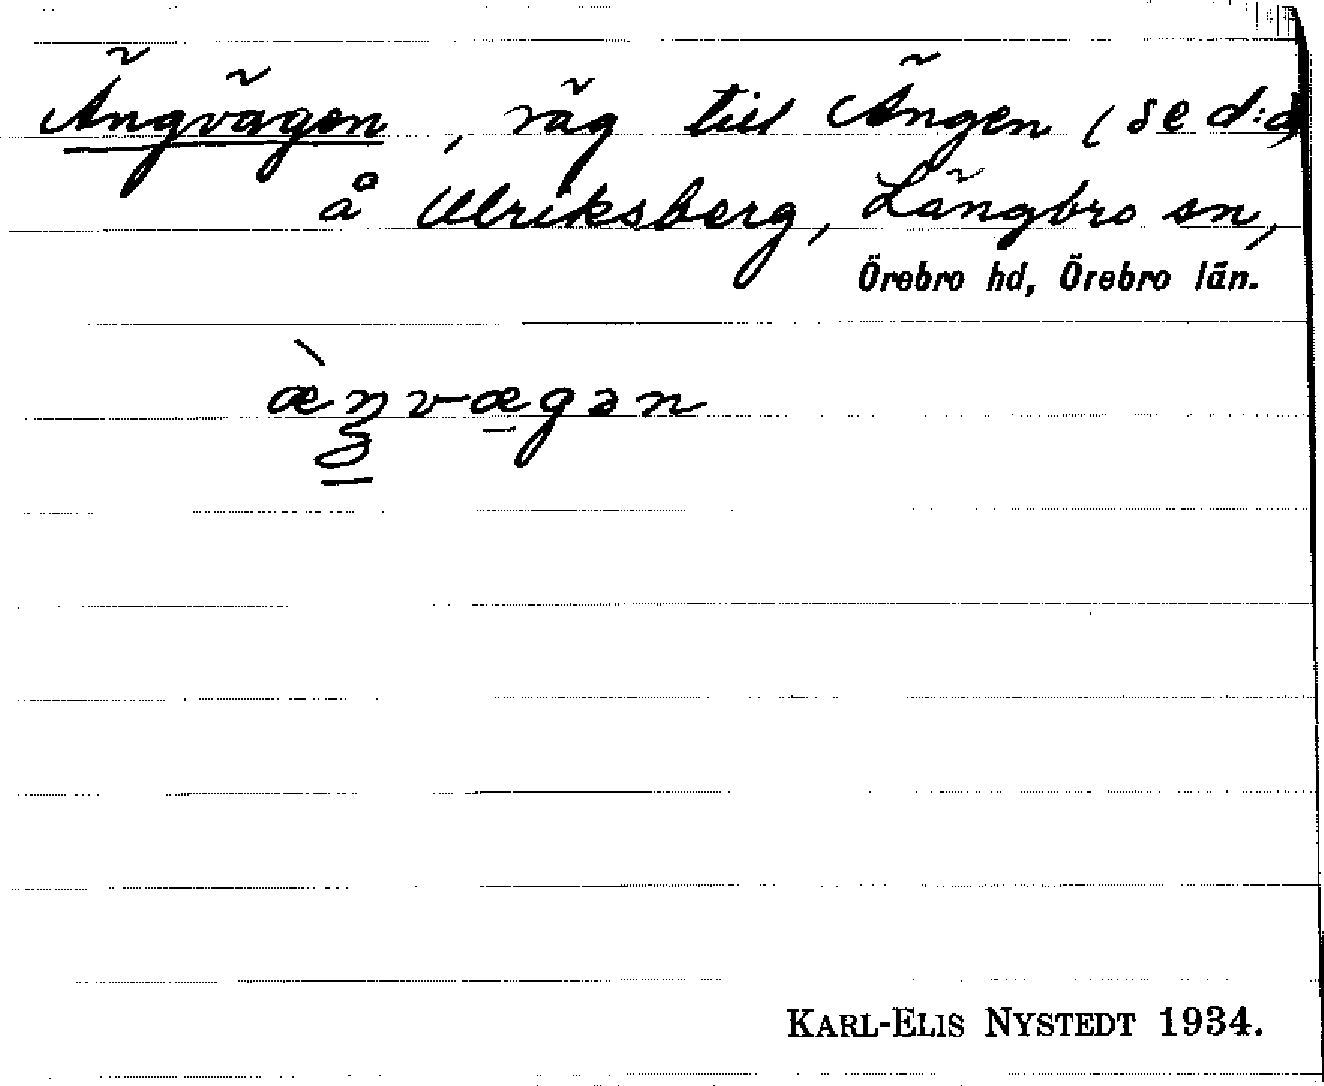 Ängvägen, väg till Ängen (se d:o)
å Ulriksberg, Längbro sn,
Örebro hd, Örebro län.
æ̀ŋvægən
KARL-ELIS NYSTEDT 1934.